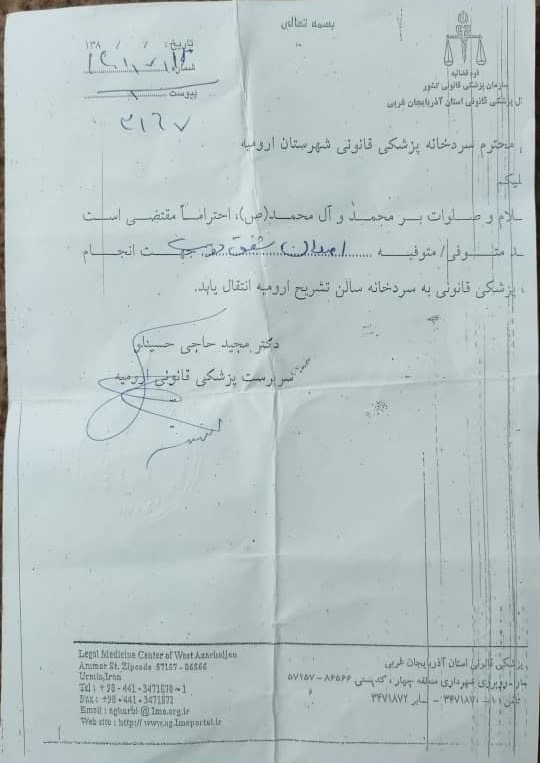 بسمه تعالی
قوه قضائیه
سازمان پزشکی قانونی کشور
ل پزشکی قانونی استان آذربایجان غربی
تاریخ: / / ۱۳۸
شماره
پیوست
محترم سردخانه پزشکی قانونی شهرستان ارومیه
لیکم
سلام و صلوات بر محمد و آل محمد(ص)، احتراماً مقتضی است
متوفی/ متوفیه جهت انجام
پزشکی قانونی به سردخانه سالن تشریح ارومیه انتقال یابد.
دکتر مجید حاجی حسینلو
سرپرست پزشکی قانونی ارومیه
Legal Medicine Center of West Azarbaijan
Ammar St. Zipcode 57157 - 86566
Urmia,Iran
Tel : + 98 - 441 - 3471870 ~ 1
Fax : + 98 - 441 - 3471872
Email : agharbi @ lmo.org.ir
Web site : http:// www.ag.lmoportal.ir
پزشکی قانونی استان آذربایجان غربی
روبروی شهرداری منطقه چهار ، کدپستی ۸۶۵۶۶ - ۵۷۱۵۷
تلفن : ۱ - ۳۴۷۱۸۷۰ - نمابر ۳۴۷۱۸۷۲